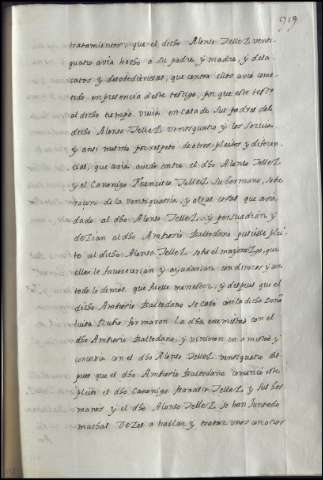 tratamientos, que el dicho Alonso Tellez venti
quatro avia hecho a su padre, y madre, y desa
catos y desobediencias, que contra ellos avia come
tido, en presencia deste testigo, por que este testigo
al dicho tiempo vivia en casa de sus padres del
dicho Alonso Tellez ventiquatro y los servia
y ansi mesmo por respeto de otros pleitos y diferen
cias, que avia avido entre el dho Alonso Tellez
y el Canonigo Francisco Tellez su hermano, sobre
de la ventiquatria, y otras cosas que
dado al dho Alonso Tellez, y persuadian y
dezian al dho Antonio Baltodano pusiesse plei
to al dicho Alonso Tellez sobre el mayorazgo, que
ellos le favorecerian y ayudarian con dineros y con
todo lo demas que fuesse menester, y despues que el
dicho Antonio Baltodano se caso con la dicha Doña
Luisa formaron la dha enemistad con el
dho Antonio Baltodano, y vinieron en amistad y
con el dho Alonso Tellez ventiquatro des
pues que el dho Antonio Baltodano començo este
pleito el dho Canonigo Francisco Tellez y sus her
manos y el dho Alonso Tellez se han juntado
muchas vezes a hablar y tratar unos con otros